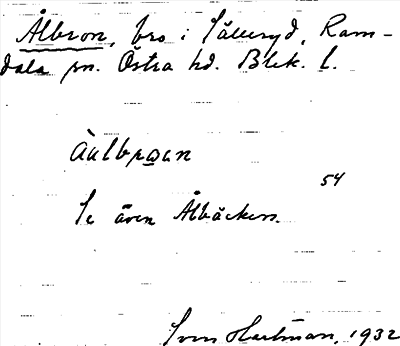 Ålbron, bro i Sälleryd, Ram-
dala sn. Östra hd. Blek. l.
Àulbrꝏn
54
Se även Ålbäcken.
Sven Hartman, 1932